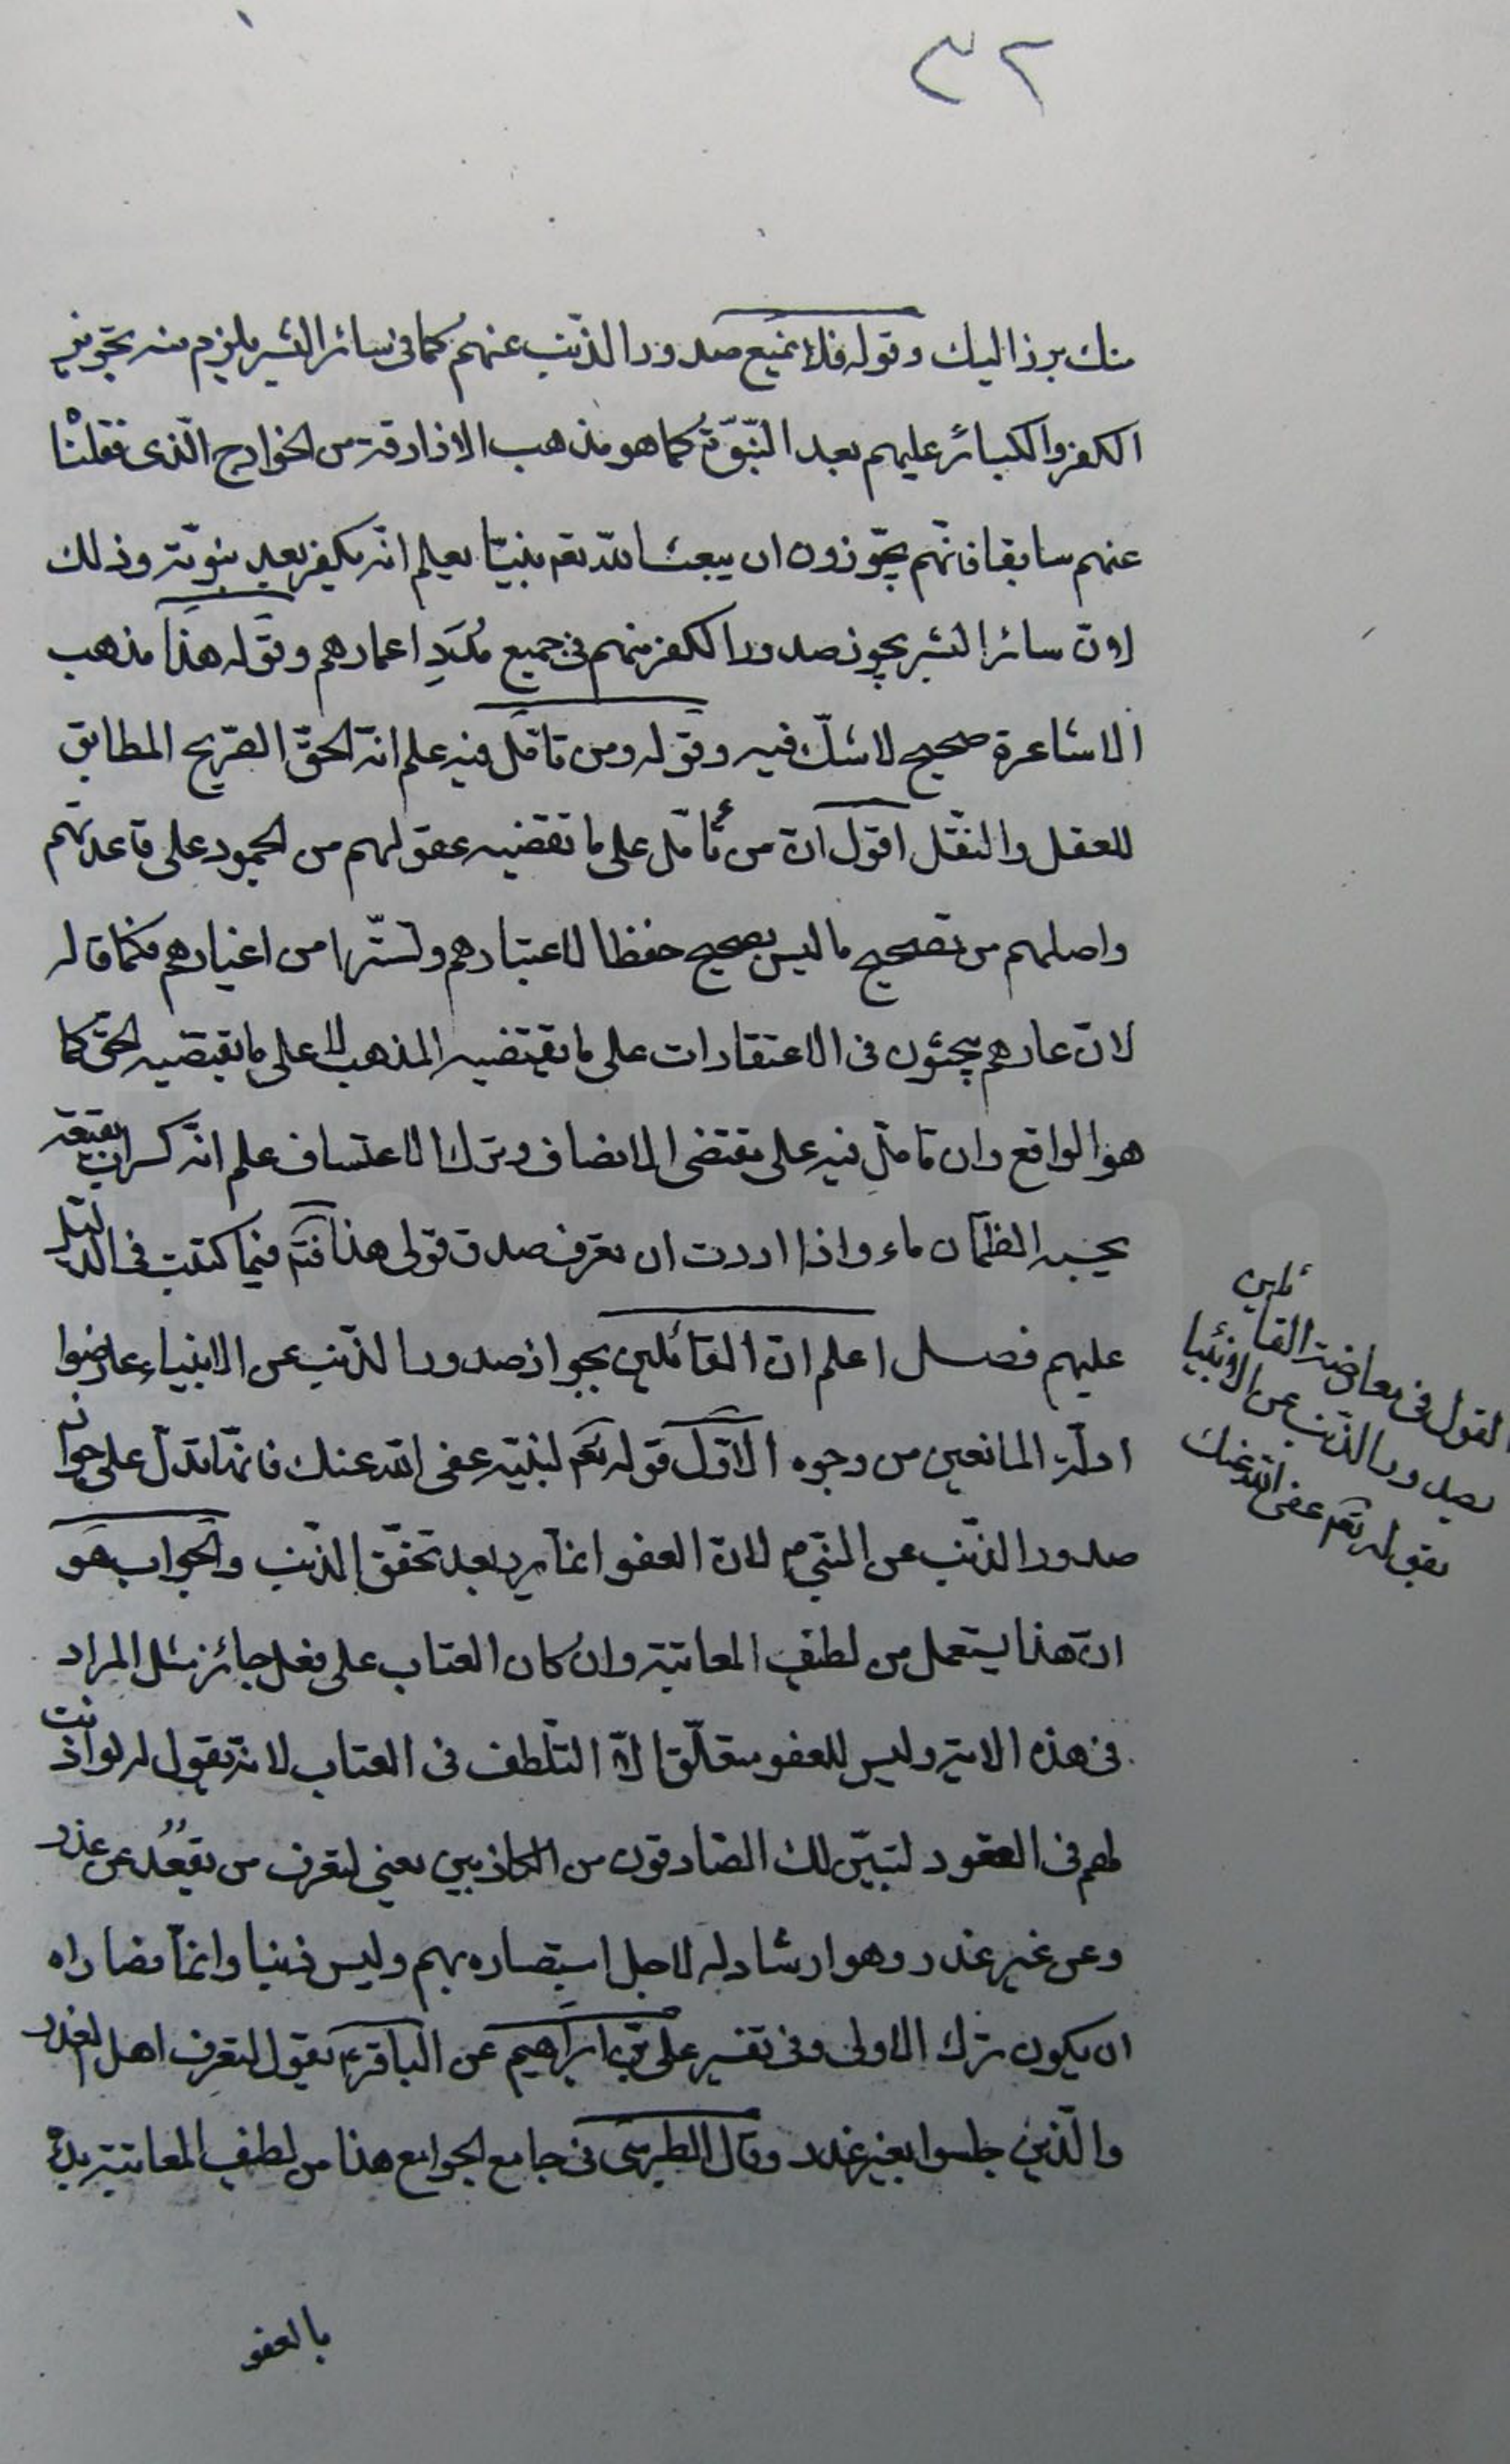 ٣٢
منك برز اليك وقوله فلا يمنع صدور الذّنب عنهم كما فى سائر البشر يلزم منه تجويز
الكفر والكبائر عليهم بعد النّبوّة كما هو مذهب الازارقة من الخوارج الّذى نقلنا
عنهم سابقا فانّهم يجّوزون ان يبعث الله تعم نبيّا يعلم انّه يكفر بعد نبوّته وذلك
لانّ سائر البشر يجوز صدور الكفر منهم فى جميع مُدَدِ اعمارهم وقوله هذا مذهب
الاشاعرة صحيح لا شكّ فيه وقوله ومن تامّل فيه علم انّه الحقّ الصّريح المطابق
للعقل والنّقل اقول انّ من تأمّل على ما تقضيه عقولهم من الجمود على قاعدتهم
واصلهم من تصحيح ما ليس بصحيح حفظا لاعتبارهم وتستّرا من اغيارهم فكما قاله
لانّ عادهم يبحثون فى الاعتقادات على ما يقتضيه المذهب لا على ما يقتضيه الحقّ كما
هو الواقع وان تامّل فيه على مقتضى الانصاف وترك الاعتساف علم انّه كسراب بقيعة
يحسبه الظمآن ماء واذا اردت ان تعرف صدق قولى هذا فتمّ فيما كتبت فى الردّ
عليهم فصل اعلم انّ القائلين بجواز صدور الذّنب عن الانبياء عارضوا
ادلّة المانعين من وجوه الاوّل قوله تعم لنبيّه عفى الله عنك فانّها تدلّ على جواز
صدور الذّنب عن النّبىّ م لانّ العفو انما يرد بعد تحقّق الذّنب والجواب هو
انّ هذا يستعمل من لطيف المعاتبة وان كان العتاب على فعل جائز مثل المراد
فى هذه الاية وليس للعفو متعلّق الّا التّلطف فى العتاب لانّه يقول له لو اذنت
لهم فى القعود لتبيّن لك الصّادقون من الكاذبين يعنى لتعرف من يقعُد عن عذر
وعن غير عذر وهو ارشاد له لاجل استبصاره بهم وليس ذنبا وانّما قصاراه
ان يكون ترك الاولى وفى تفسير على بن ابراهيم عن الباقر ع يقول لتعرف اهل العذر
والّذين جلسوا بغير عذر وقال الطبرسى فى جامع الجوامع هذا من لطيف المعاتبة بدأ
بالعفو
القول فى معارضة القائلين
بصدور الذّنب عن الانبيا
بقوله تعم عفى الله عنك